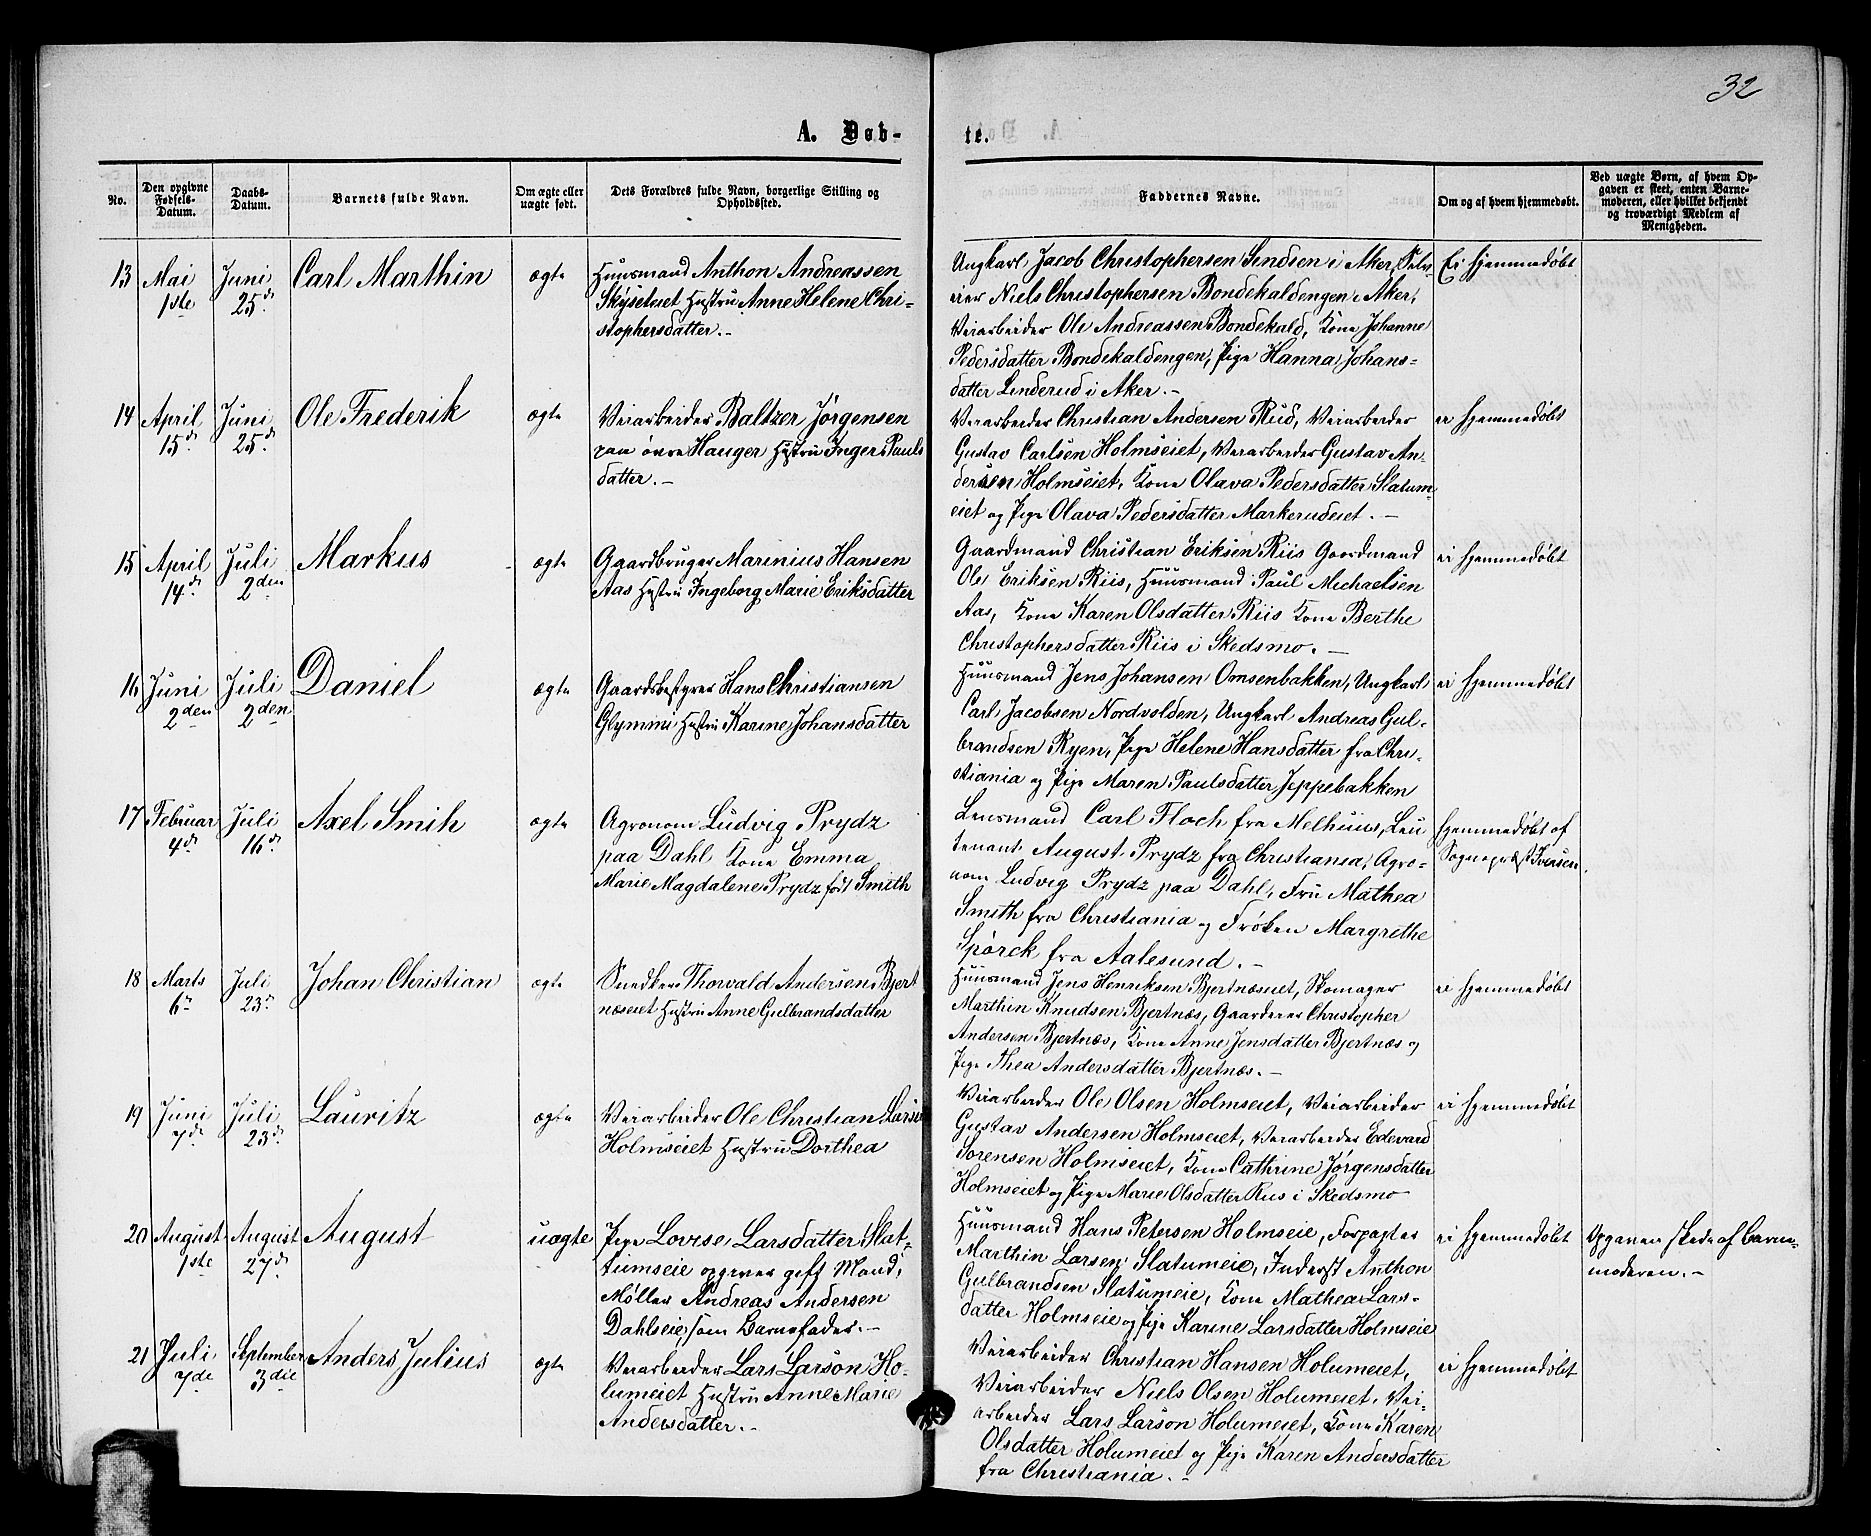 32
A. Døb-
te.
No.
Den opgivne Fødsels-Datum.
Daabs-Datum.
Barnets fulde Navn.
Om ægte eller uægte født.
Dets Forældres fulde Navn, borgerlige Stilling og Opholdssted.
Faddernes Navne.
Om og af hvem hjemmedøbt.
Ved uægte Børn, af hvem Op-
gaven er skeet, enten Barne-
moderen, eller hvilket bekjendt
og troværdigt Medlem af
Menigheden.
13 Mai 1ste Juni 25de Carl Marthin ægte
Huusmand Anthon Andreassen
Skýsetuet Hustru Anne Helene Chri-
stophersdatter.-
Ungkarl Jacob Christophersen Sindsen i Aker,
Niels Christophersen Bondekaldengen i Aker,
Veiarbeider Ole Andreassen Bondekald, Kone Johanne
Pedersdatter Bondekaldengen, Pige Hanna Johans-
datter Linderud i Aker.-
Ei hjemmedøbt
14 April 15de Juni 25de Ole Frederik ægte
Veiarbeider Baltzer Jørgensen
paa øvre Hauger Hustru Inger Pauls
datter.-
Veiarbeider Christian Andersen Rud, Veiarbeider
Gustav Carlsen Holmseiet, Veiarbeider Gustav An-
dersen Holmseiet, Kone Olava Pedersdatter Slatum-
eiet og Pige Olava Pedersdatter Markerudeiet.-
ei hjemmedøbt
15 April 14de Juli 2den Markus ægte
Gaardbruger Marinius Hansen
Aas Hustru Ingeborg Marie Eriksdatter
Gaardmand Christian Eriksen Riis Gaardmand
Ole Eriksen Riis, Huusmand Paul Michaelsen
Aas, Kone Karen Olsdatter Riis Kone Berthe
Christophersdatter Riis i Skedsmo.-
ei hjemmedøbt
16 Juni 2den Juli 2den Daniel ægte
Gaardsbestyrer Hans Christiansen
Glymini Hustru Karine Johansdatter
Huusmand Jens Johansen Omsenbakken, Ungkarl
Carl Jacobsen Nordvolden, Ungkarl Andreas Gul-
brandsen Ryen, Pige Helene Hansdatter fra Chri-
stiania og Pige Maren Paulsdatter Jeppebakken
ei hjemmedøbt
17 Februar 4de Juli 16de Axel Smih ægte
Agronom Ludvig Prydz
paa Dahl Kone Emma
Marie Magdalene Prydz født Smith
Lensmand Carl Floch fra Melhuus, Leu
tenant August Prydz fra Christiania, Agro-
nom Ludvig Prydz paa Dahl, Fru Mathea
Smith fra Christiania og Frøken Margrethe
Spørck fra Aalesund.-
Hjemmedøbt af
Sognepræst Iversen.
18 Marts 6te Juli 23de Johan Christian ægte
Snedker Thorvald Andersen Bjert
næseiet Hustru Anne Gulbrandsdatter
Huusmand Jens Henriksen Bjertnæseiet, Skomager
Marthin Knudsen Bjertnæs, Gaardeier Christopher
Andersen Bjertnæs, Kone Anne Jensdatter Bjertnæs og
Pige Thea Andersdatter Bjertnæs.-
ei hjemmedøbt
19 Juni 7de Juli 23de Lauritz ægte
Veiarbeider Ole Christian Larsen
Holmseiet Hustru Dorthea
Veiarbeider Ole Olsen Holmseiet, Veiarbeider
Gustav Andersen Holmseiet, Veiarbeider Edevard
Sørensen Holmseiet, Kone Cathrine Jørgensdatter
Holmseiet og Pige Marie Olsdatter Rus i Skedsmo
ei hjemmedøbt
20 August 1ste August 27de August uægte
Pige Lovise Larsdatter Slat-
tumseie opgiver gift Mand,
Møller Andreas Andersen
Dahlseie, som Barnefader.-
Huusmand Hans Petersen Holmseie, Forpagter
Marthin Larsen Slatumeie, Inderst Anthon
Gulbrandsen Slatumeie, Kone Mathea Lars-
datter Holmseie og Pige Karine Larsdatter Holmseie
ei hjemmedøbt
Opgaven skede af Barne-
moderen.-
21 Juli 7de September 3die Anders Julius ægte
Veiarbeider Lars Larson Ho-
lumeiet Hustru Anne Marie
Andersdatter.-
Veiarbeider Christian Hansen Holumeiet,
Veiarbeider Niels Olsen Holumeiet, Vei-
arbeider Lars Larson Holumeiet, Kone Karen
Olsdatter Holumeiet og Pige Karen Andersdatter
fra Christiania.-
ei hjemmedøbt